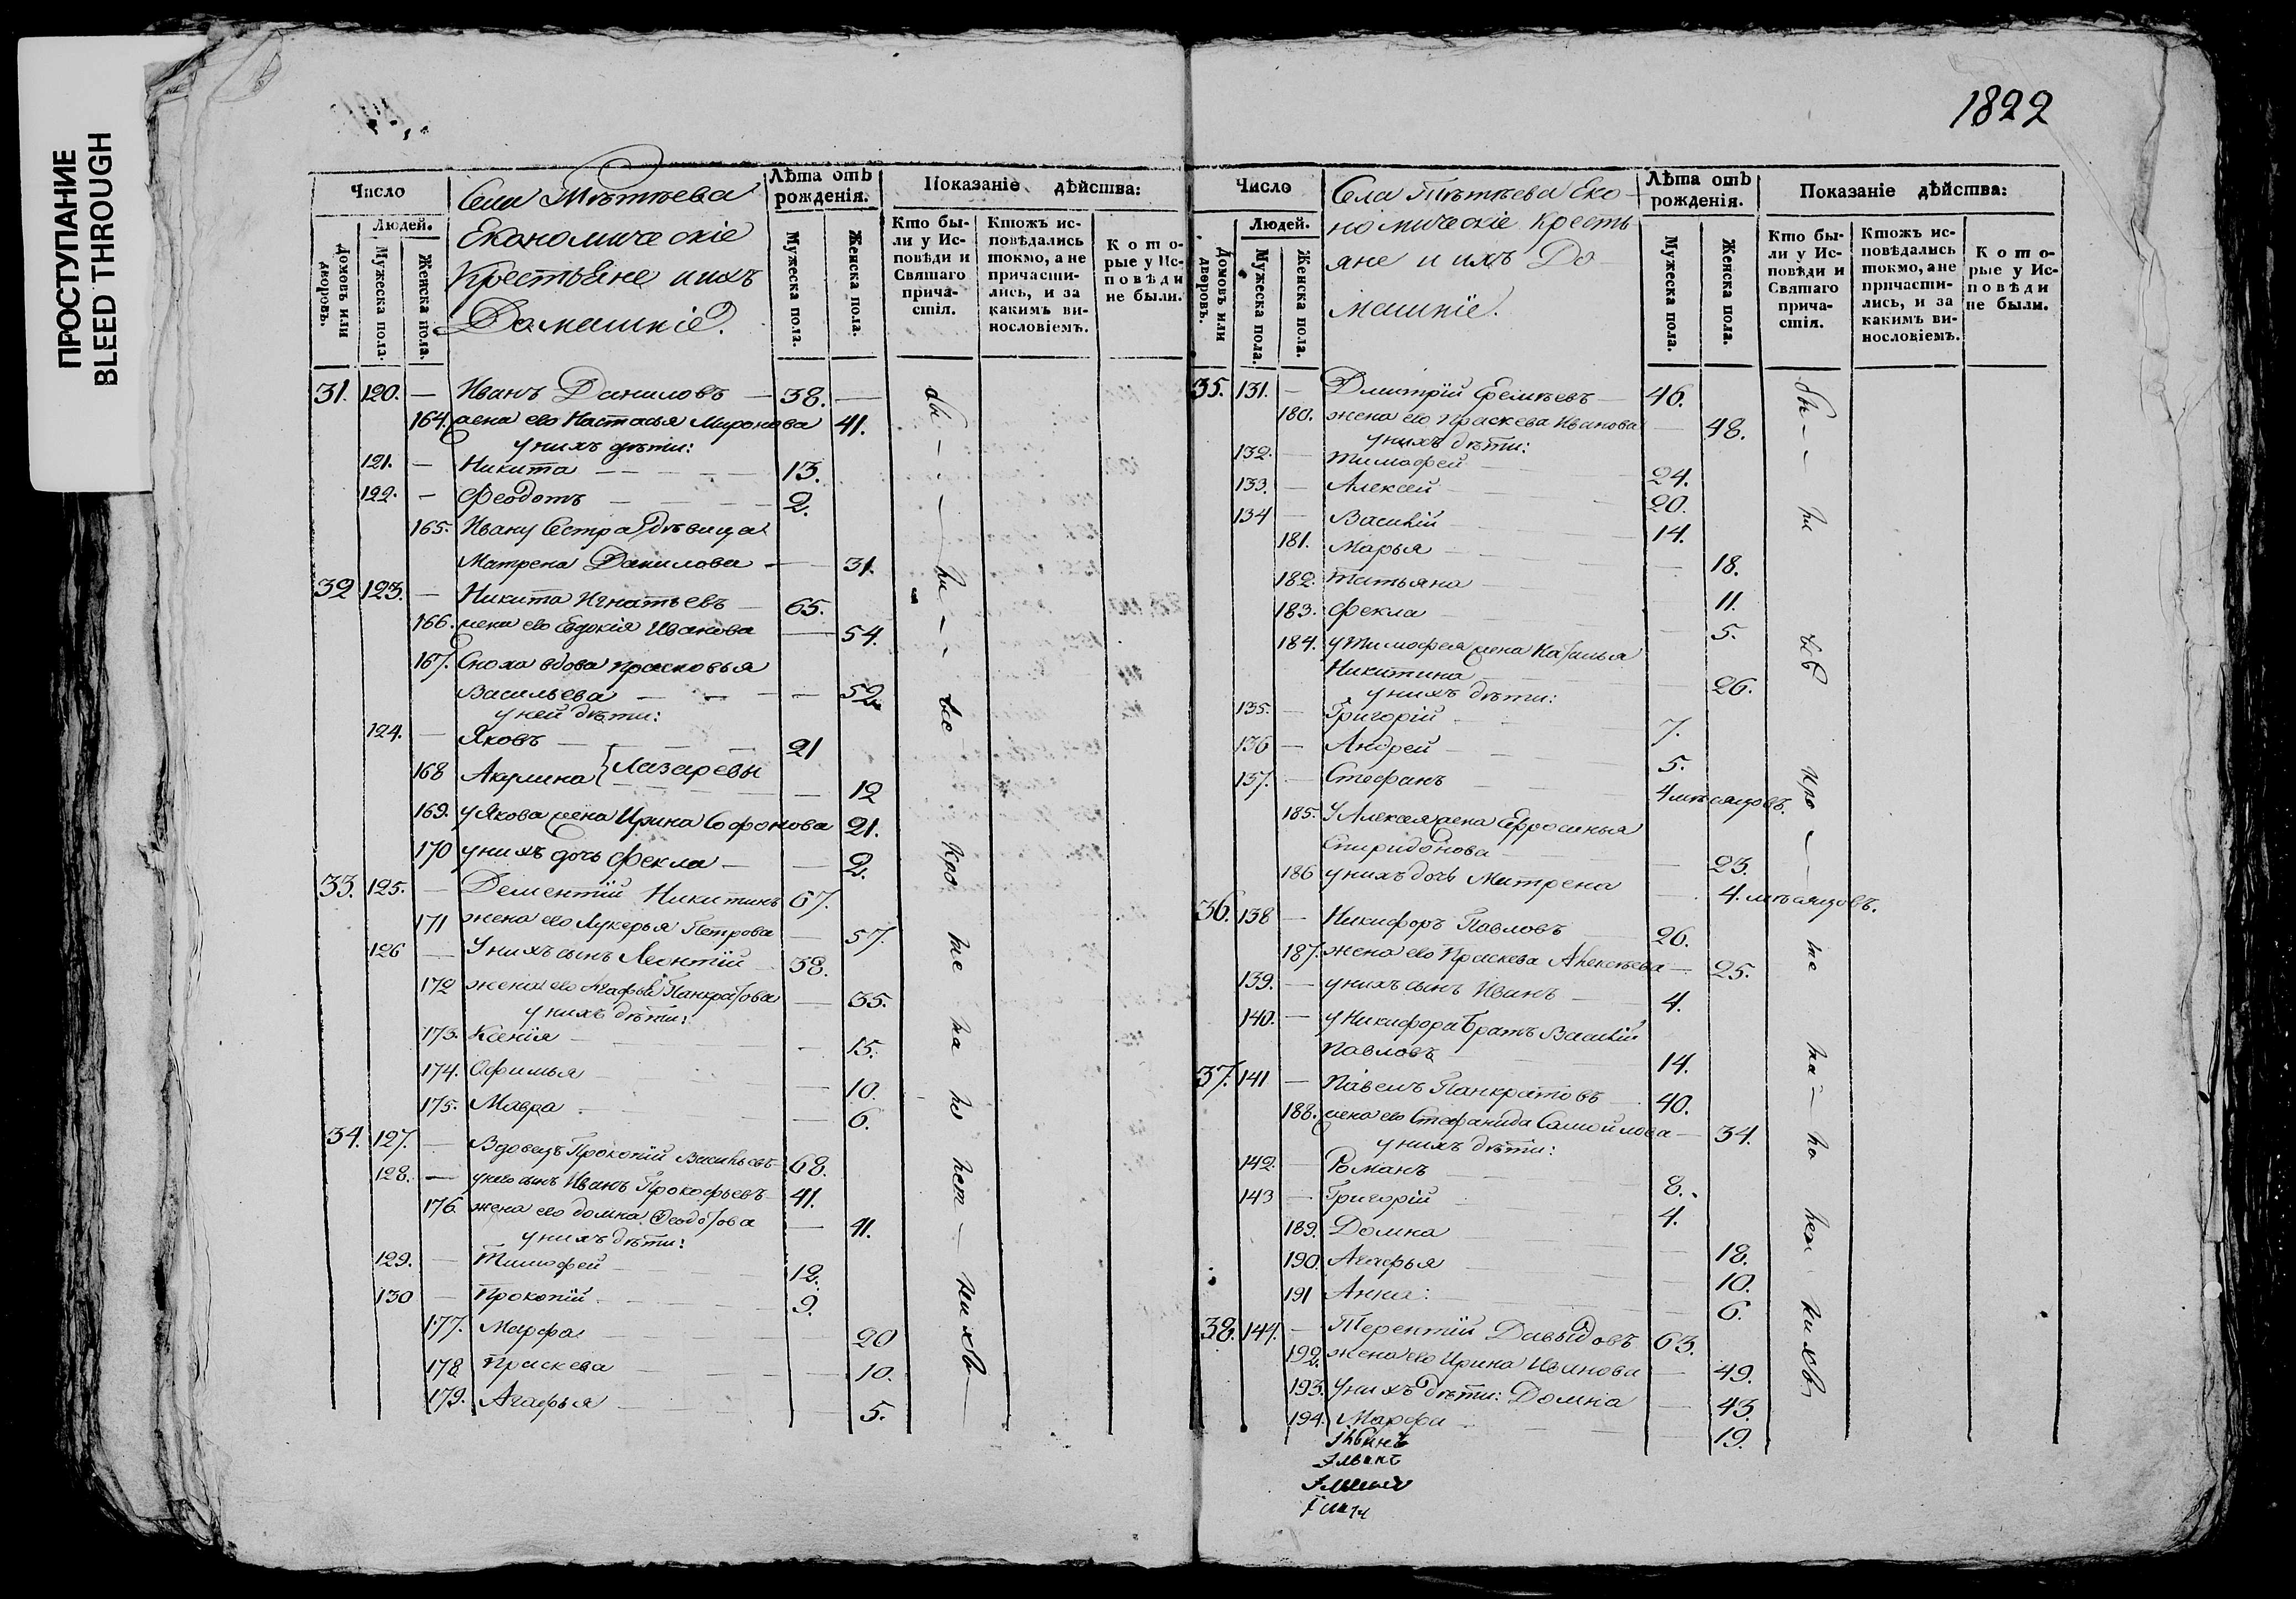 ПРОСТУПАНИЕ
BLEED THROUGH
1822
Число
Людей.
Домовъ или дворовъ.
Мужеска пола.
Женска пола.
Села
Економическіе
Крестьяне и ихъ
Домашніе.
Лѣта отъ рожденія.
Мужеска пола.
Женска пола.
Показаніе дѣйства:
Кто были у Исповѣди и Святаго причастія.
Ктожъ исповѣдались токмо, а не причастились, и за какимъ винословіемъ.
Которые у Исповѣди не были.
31. 120. — Иванъ Даниловъ — 38. —
164. жена его Настасья Миронова 41.
у нихъ дѣти:
121. — Никита — 13.
122. — Феодотъ — 2.
165. Ивану Сестра дѣвица
Матрена Данилова — 31.
32 123. — Никита Игнатьевъ — 65.
166. жена его Евдокія Иванова — 54.
167. Сноха вдова Прасковья
Васильева — 52.
у ней дѣти:
124. — Яковъ — 21
168 Акулина } Лазаревы — 12
169. у Якова жена Ирина Софонова 21.
170 у нихъ дочь Фекла — 2.
33. 125. — Дементій Никитинъ 67.
171 жена его Лукерья Петрова — 57.
126 — У нихъ сынъ Леонтій 38.
172 жена его Агафья Панкратова — 35.
у нихъ дѣти:
173. Ксенія — 15.
174. Офимья — 10.
175. Мавра — 6.
34. 127. — Вдовецъ Прокопій Васильевъ 68.
128. — у него сынъ Иванъ Прокофьевъ 41.
176. жена его Домна Феодотова — 41.
у нихъ дѣти:
129. — Тимофей — 12.
130 — Прокопій — 9.
177. Марфа — 20
178 Праскева — 10.
179. Агафья — 5.
Число
Людей.
Домовъ или дворовъ.
Мужеска пола.
Женска пола.
Села Еко-
номическіе кресть
яне и ихъ До
машніе.
Лѣта отъ рожденія.
Мужеска пола.
Женска пола.
Показаніе дѣйства:
Кто были у Исповѣди и Святаго причастія.
Ктожъ исповѣдались токмо, а не причастились, и за какимъ винословіемъ.
Которые у Исповѣди не были.
35. 131. — Дмитрій Еремѣевъ — 46.
180. жена его Праскева Иванова — 48.
у нихъ дѣти:
132. — Тимофей — 24.
133. — Алексей — 20.
134 — Василій — 14.
181. Марья — 18.
182. Татьяна — 11.
183. Фекла — 5.
184. у Тимофея жена Наталья
Никитина — 26.
у нихъ дѣти:
135. — Григорій — 7.
136 — Андрей — 5.
137. — Стефанъ 4 мѣсяцовъ.
185. У Алексея жена Ефросинья
Спиридонова — 23.
186 у нихъ дочь Матрена — 4. мѣсяцовъ.
36. 138 — Никифоръ Павловъ 26.
187. жена его Праскева Алексѣева — 25.
139. — у нихъ сынъ Иванъ — 4.
140. — у Никифора братъ Василій
Павловъ — 14.
37. 141 — Павелъ Панкратовъ — 40.
188. жена его Стефанида Самойлова — 34.
у нихъ дѣти:
142. — Романъ — 8.
143 — Григорій — 4.
189. Домна — 18.
190. Агафья — 10.
191 Анна: — 6.
38. 144. — Терентій Давыдовъ 63.
192. жена его Ирина Иванова — 49.
193. У нихъ дѣти: Домна — 43.
194. Марфа — 19.